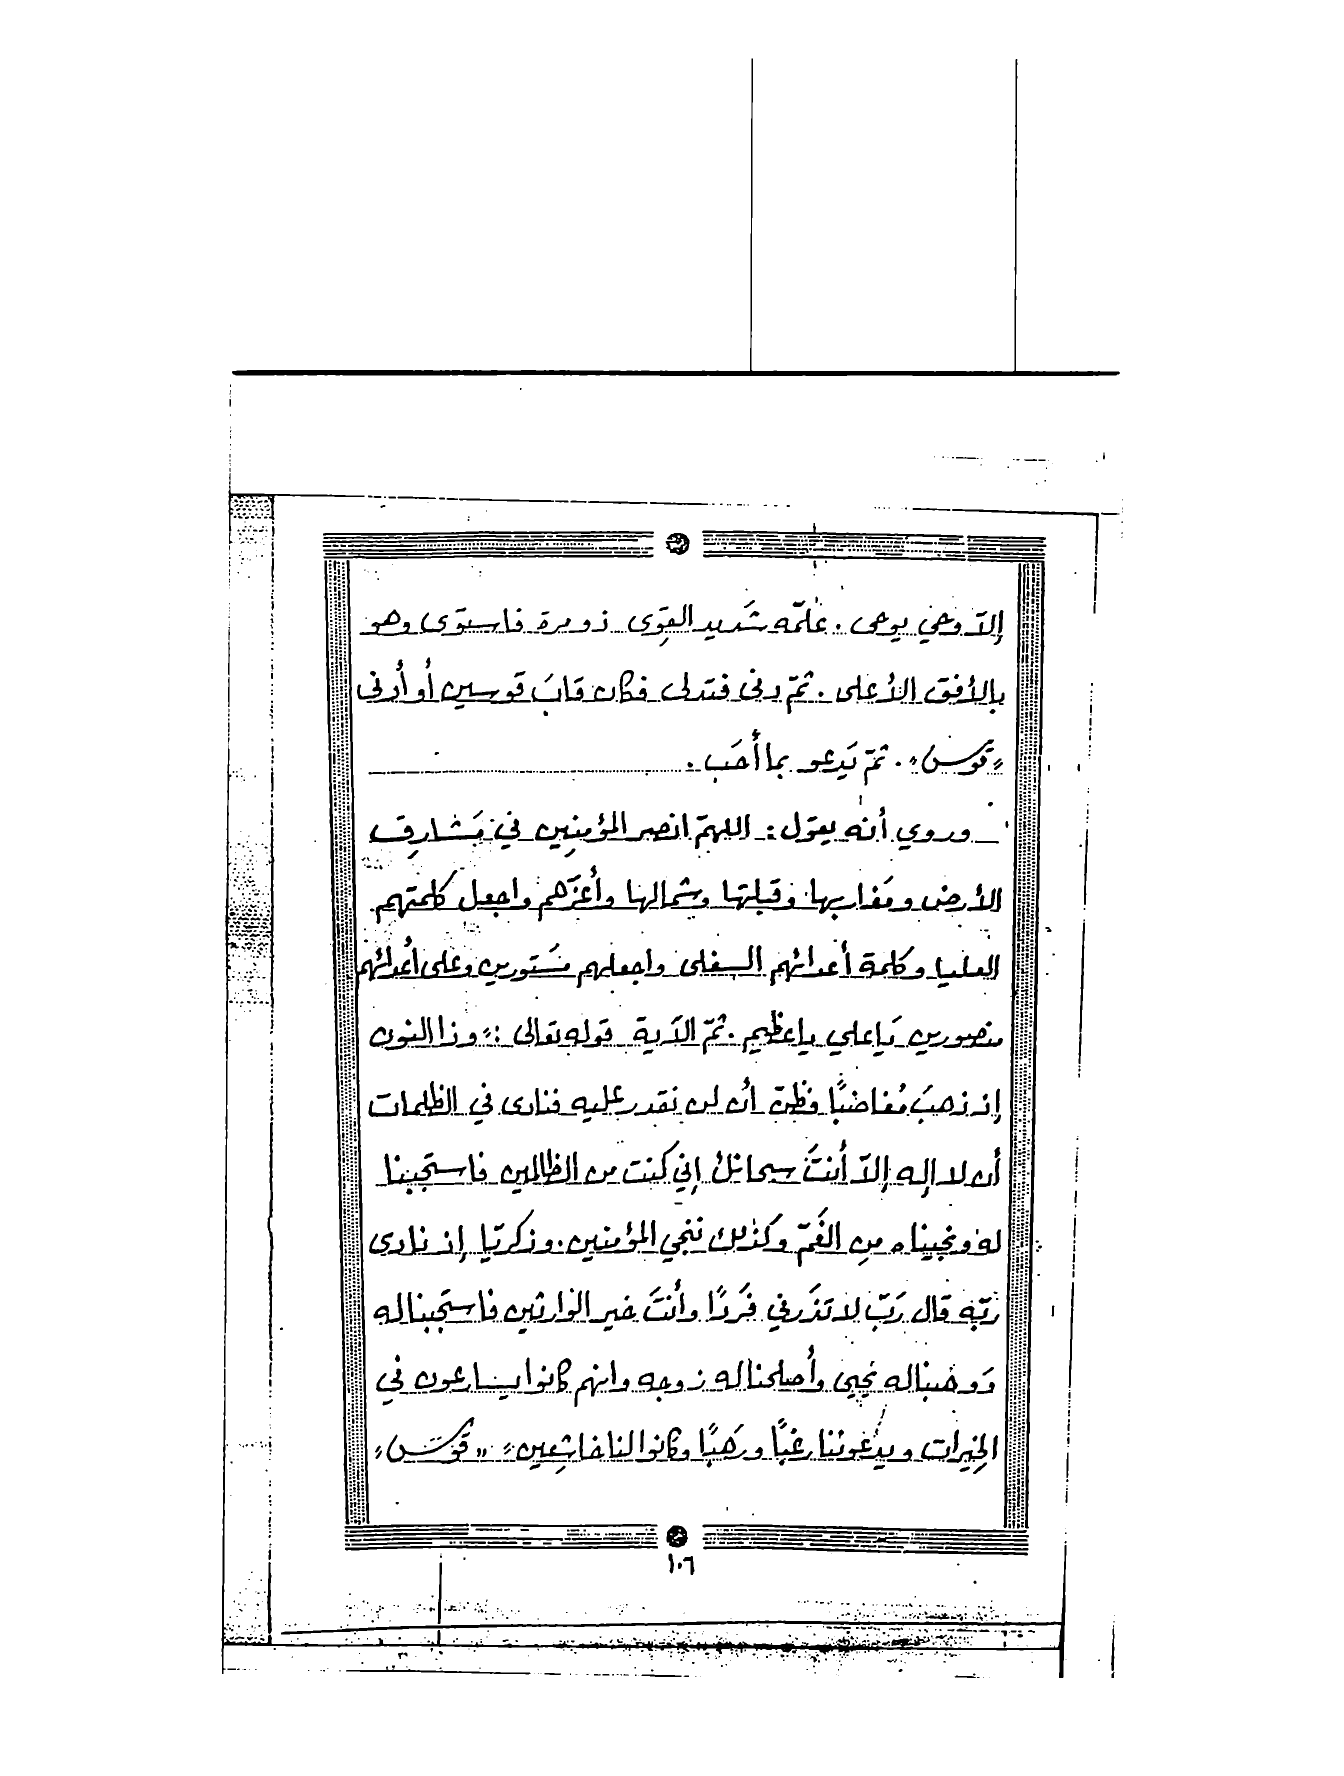 إلّا وحي يوحى . علّمه شَديد القوى ذو مرة فاستوى وهو
بالأفق الأعلى . ثمّ دنى فتدلى فكان قابَ قوسين أو أدنى
« قوس » . ثمّ يَدعو بما أحَب .
_ وروي أنه يقول : اللهمّ انصر المؤمنِين في مَشارق
الأرض ومَغاربها وقبلتها وشمالها وأعزّهم واجعل كلمتهم
العليا وكلمة أعدائهم السفلى واجعلهم مَستورين وعلى أعدائهم
منصورين يَا علي يا عظيم . ثمّ الآية قوله تعالى : « وذا النون
إذ ذهبَ مُغاضبًا فظنّ أن لن نقدر عليه فنادى في الظلمات
أن لا إله إلّا أنتَ سبحانك إني كنت من الظالمين فاستجَبنا
له ونجيناه مِن الغَمّ وكذلك ننجي المؤمنين . وزكريّا إذ نادى
ربّه قال رَبّ لا تذَرني فَردًا وأنتَ خير الوارثين فاستجَبنا له
وَوهبنا له يحيى وأصلحنا له زوجه وانهم كانوا يسارعون في
الخيرات ويدعوننا رغبًا ورهَبًا وكانوا لنا خاشِعين » « قوس »
١٠٦